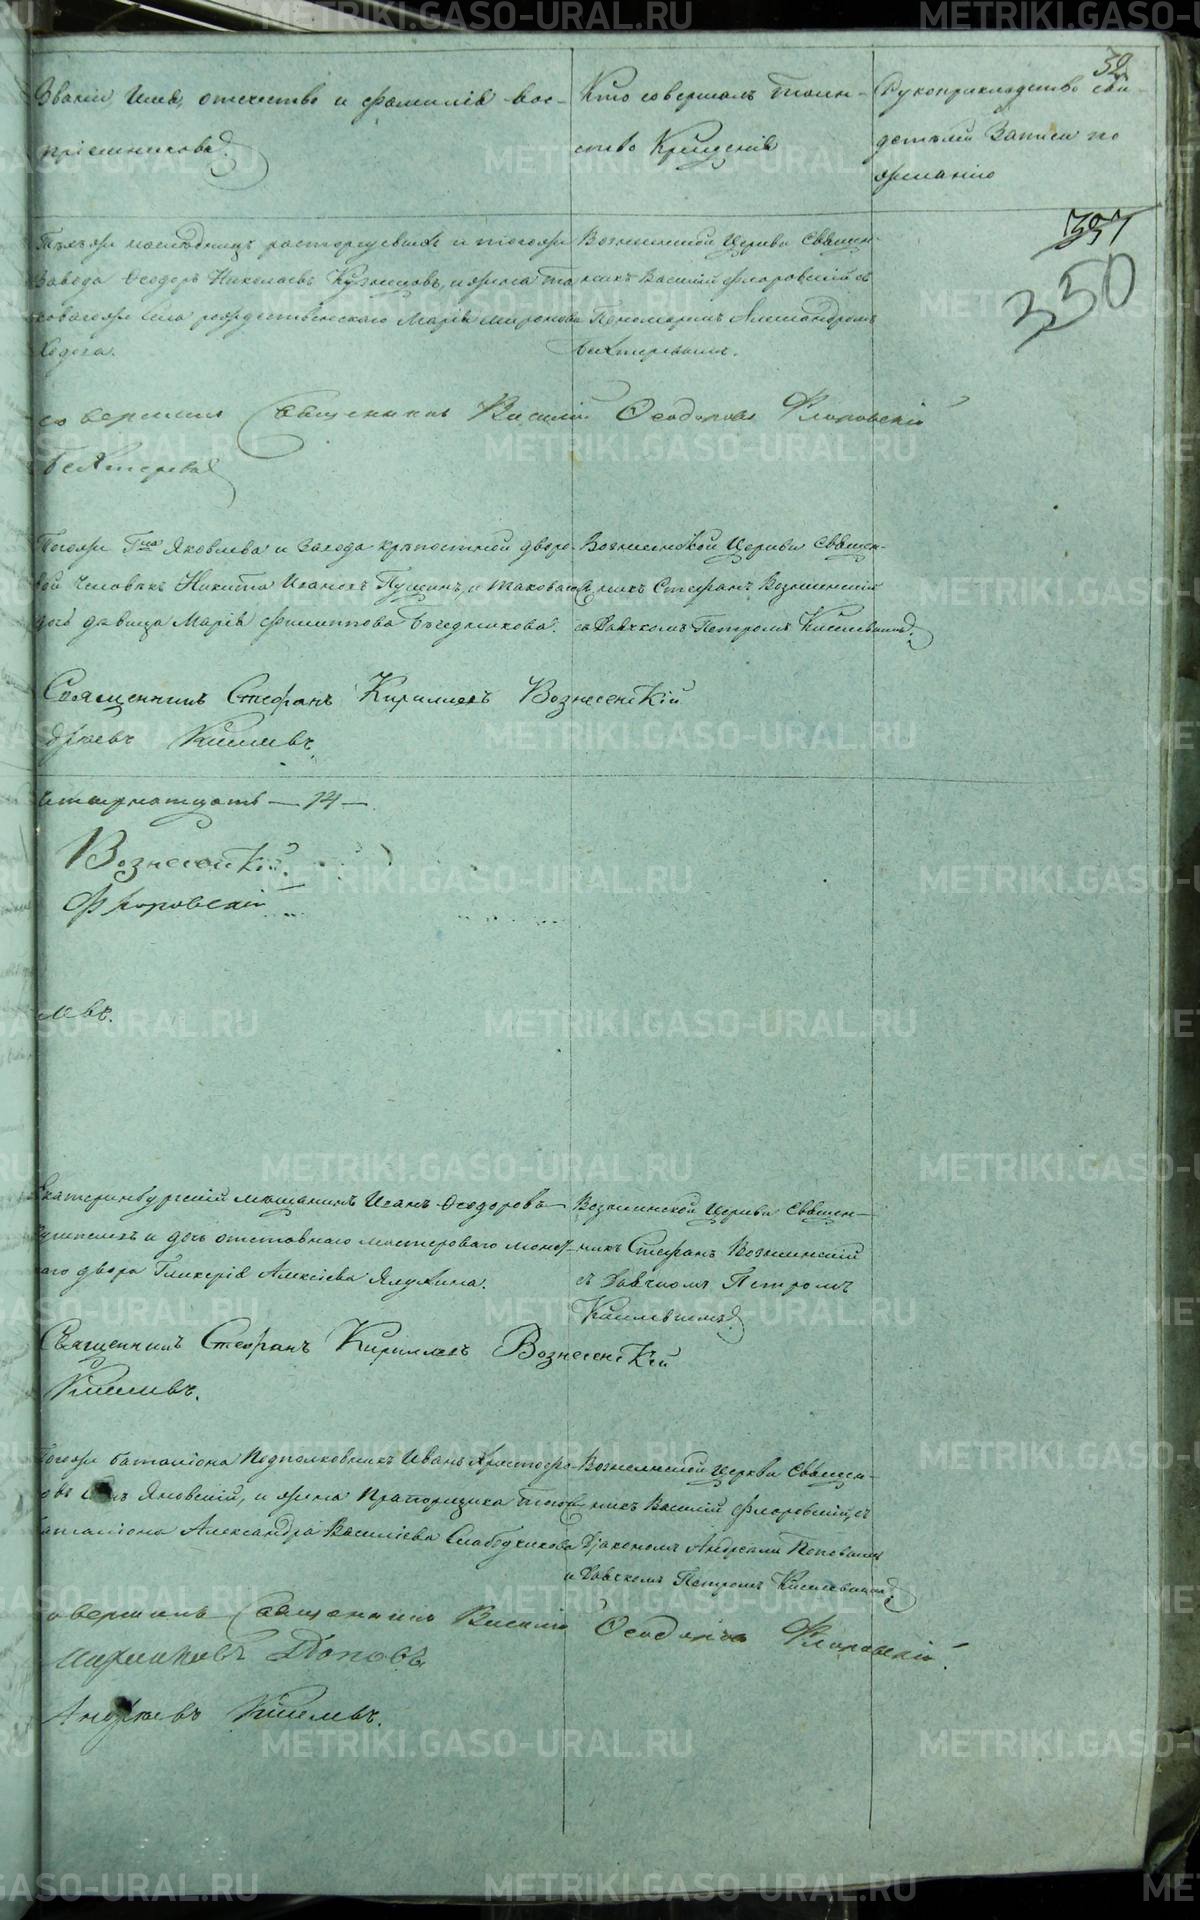 39
Званіе, Имя, отечество и фамилія вос-
пріемниковъ.
Кто совершалъ Таин-
ство Крещенія
Рукоприкладство сви-
детелей Записи по
желанію
397
350
наследницъ расторгуева и тогожъ
Завода Феодоръ Николаевъ Кузнецовъ, и жена
села рождественскаго Марія Миронова
Вознесенской Церкви Священ-
никъ Василій Флоровскій съ
Пономаремъ Александромъ
Бехтеревымъ.
совершилъ Священникъ Василій Феодоровъ Флоровскій
Бехтеревъ
Тогожъ Гна Яковлева и Завода крѣпостной дворо-
вой человѣкъ Никита Ивановъ, и таковаго
дочь дѣвица Марія Филиппова.
Вознесенской Церкви Священ-
никъ Стефанъ Вознесенскій
съ Дьячкомъ Петромъ Киселевымъ.
Священникъ Стефанъ Кириловъ Вознесенскій
Киселевъ.
14
Вознесенскій.
Флоровскій
левъ.
Екатеринбургскій мѣщанинъ Иванъ Феодоровъ
и дочь отставнаго мастероваго монет-
наго двора Гликерія Алексіева Ялухина.
Вознесенской Церкви Священ-
никъ Стефанъ Вознесенскій
съ Дьячкомъ Петромъ
Киселевымъ.
Священникъ Стефанъ Кириловъ Вознесенскій
Киселевъ.
Тогожъ баталіона Подполковникъ Иванъ Христофо-
овъ сынъ Яновскій, и жена Прапорщика тогожъ
баталіона Александра Василіева Слабодчикова
Вознесенской Церкви Священ-
никъ Василій Флоровскій, съ
Діакономъ Андреемъ Поповымъ
и Дьячкомъ Петромъ Киселевымъ.
совершилъ Священникъ Василій Феодоровъ Флоровскій.
Поповъ
Андреевъ Киселевъ.
METRIKI.GASO-URAL.RU